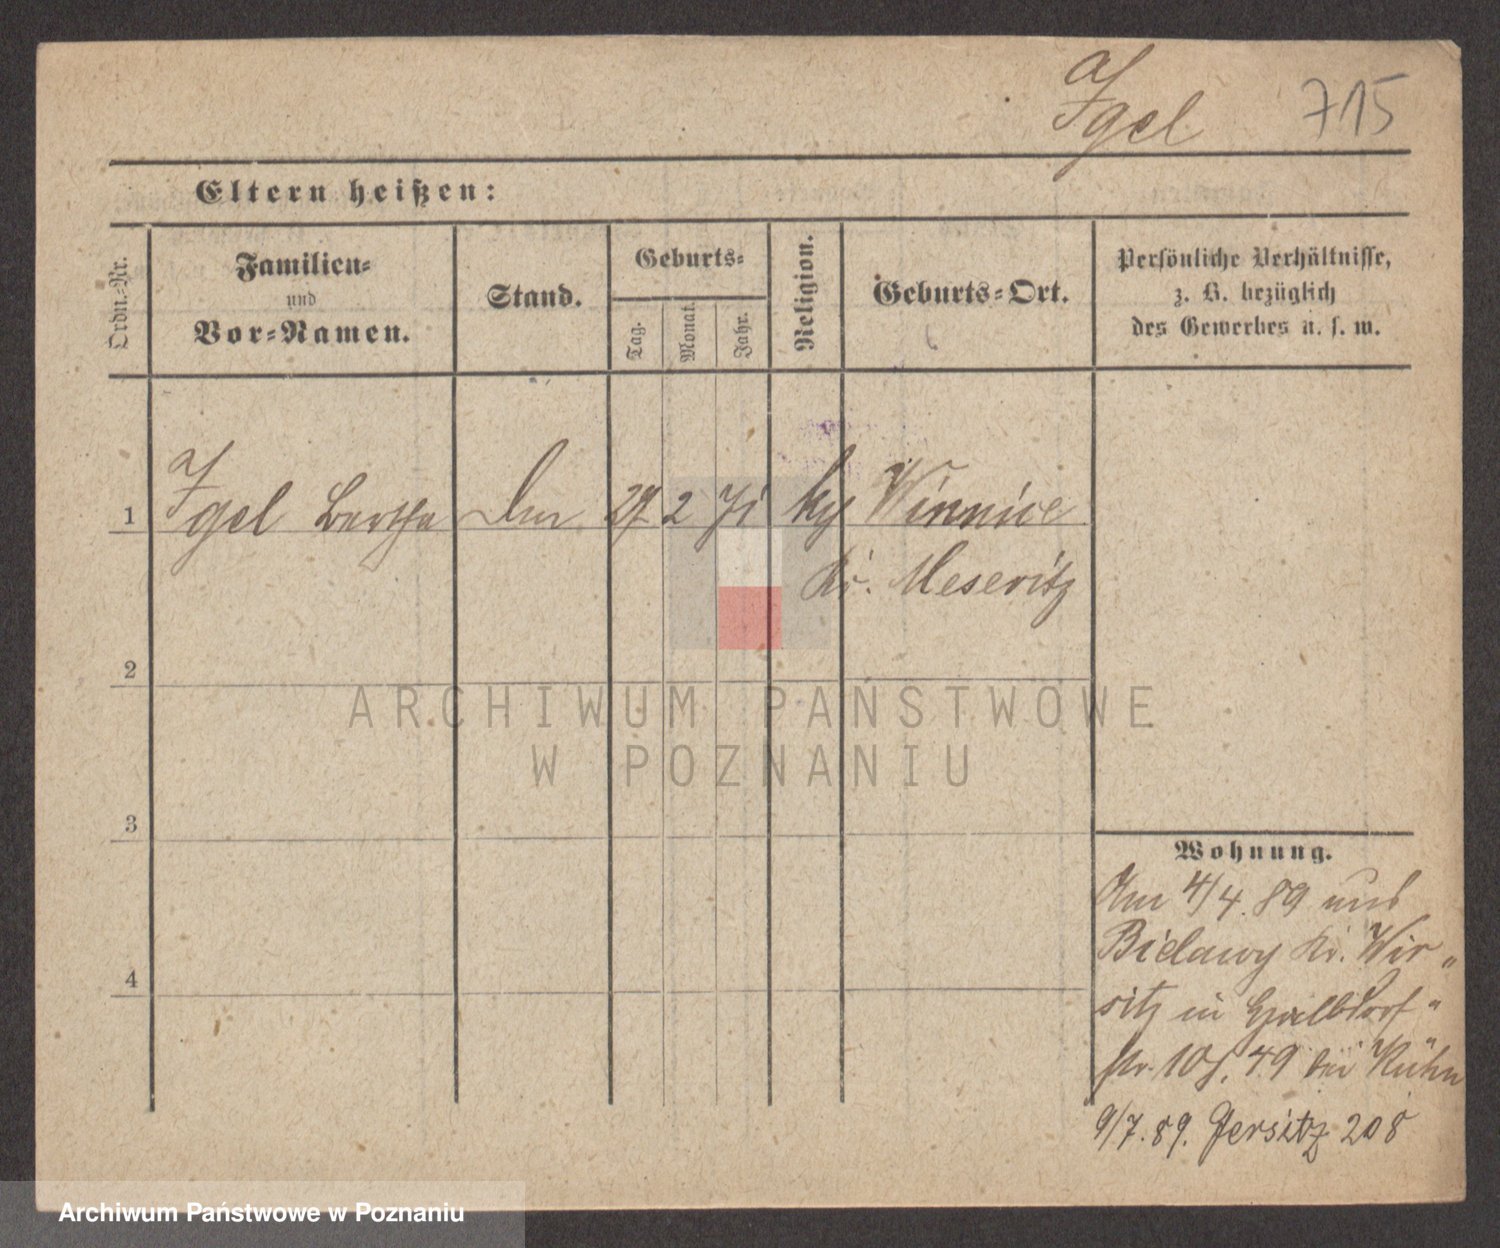 Igel 715
Eltern heißen:
Ordn.-Nr.
Familien-
und
Vor-Namen.
Stand.
Geburts-
Tag.
Monat.
Jahr.
Religion.
Geburts-Ort.
Persönliche Verhältnisse,
z. B. bezüglich
des Gewerbes u. s. w.
1 Igel Bertha 27 2 71 Winnice
Kr. Meseritz
2
3
4
Wohnung.
Am 4/4. 89 aus
Bielawy Kr. Wir„
sitz in Halbdorf„
str. 49 bei Kühn
9/7. 89. Jersitz 208
ARCHIWUM PAŃSTWOWE
W POZNANIU
Archiwum Państwowe w Poznaniu